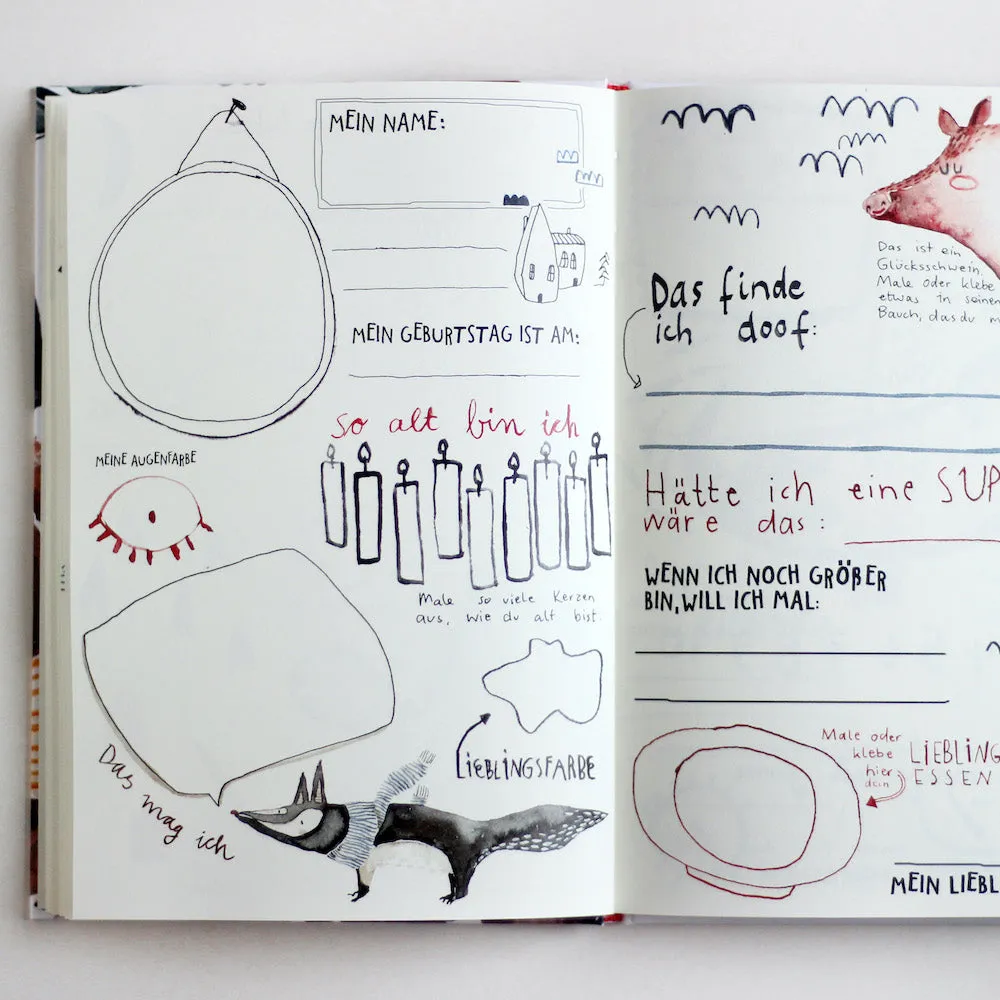 MEIN NAME:
MEIN GEBURTSTAG IST AM:
so alt bin ich
MEINE AUGENFARBE
Male so viele Kerzen
aus, wie du alt bist.
LIEBLINGSFARBE
Das mag ich
Das ist ein
Glücksschwein.
Male oder klebe
etwas in seinen
Bauch, das du m
Das finde
ich doof:
Hätte ich eine SUP
wäre das:
WENN ICH NOCH GRÖßER
BIN, WILL ICH MAL:
Male oder
klebe
hier
dein
LIEBLING
ESSEN
MEIN LIEBL